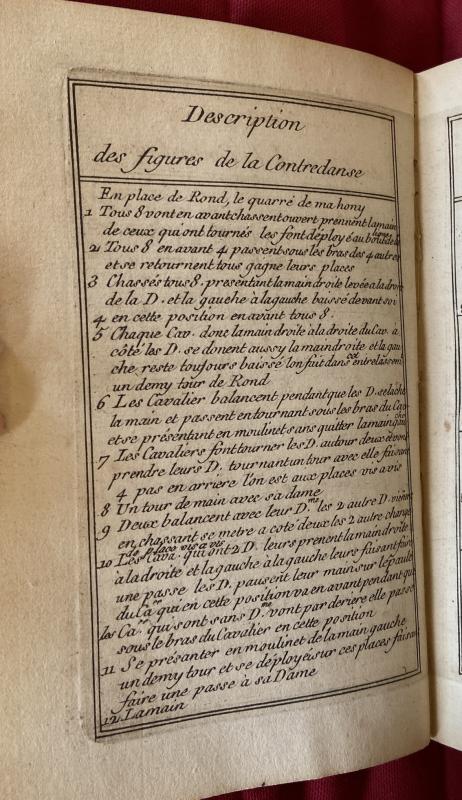 Description
des figures de la Contredanse
En place de Rond, le quarré de mahony
1 Tous 8 vont en avant chassent ouvert prennent la main
de ceux qui ont tournés les font déployé au bout de la ligne
2 Tous 8 en avant 4 passent sous les bras des 4 autres
et se retournent tous gagne leurs places
3 Chassés tous 8. presentant la main droite levée a la droite
de la D. et la gauche à la gauche baissé devant soi
4 en cette position en avant tous 8.
5 Chaque Cav. donc la main droite à la droite du Cav. à
côté les D. se donent aussy la main droite et la gau
che reste toujours baissé lon fait dans cet entrelassem.t
un demy tour de Rond
6 Les Cavalier balancent pendant que les D. se lache
la main et passent en tournant sous les bras du Cav.
et se présentant en moulinet sans quitter la main gau che
7 Les Cavaliers font tourner les D. autour deux et vont
prendre leurs D. tournant un tour avec elle faisant
4 pas en arriere l'on est aux places vis avis
8 Un tour de main avec sa dame
9 Deux balancent avec leur D.me les 2 autre D. vienn.
en chassant se metre a coté deux les 2 autre change
de place vis a vis
10 Les Cava. qui ont 2 D. leurs prenent la main droite
à la droite et la gauche à la gauche leurs faisant faire
une passe les D. pausent leur main sur l'épaule
du Ca.er qui en cette position va en avant pendant que
les Ca.er qui sont sans D.me vont par deriere elle passe
sous le bras du Cavalier en cette position
11 Se présanter en moulinet de la main gauche
un demy tour et se déployéi sur ces places faisant
faire une passe à sa Dame
12 La main